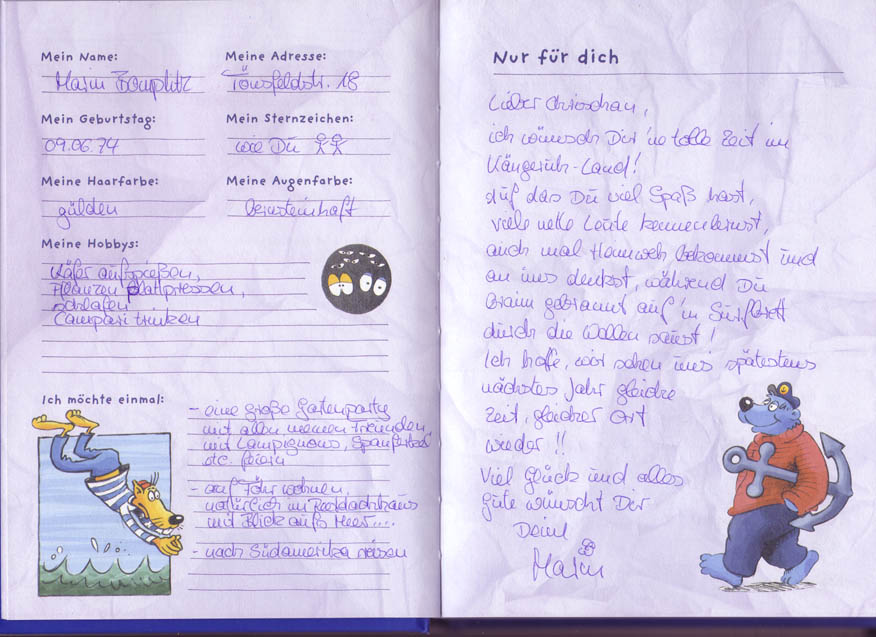 Mein Name:
Meine Adresse:
Tönsfeldstr. 18
Mein Geburtstag:
Mein Sternzeichen:
09.06.74
wie Du
Meine Haarfarbe:
Meine Augenfarbe:
gülden
bernsteinhaft
Meine Hobbys:
Käfer aufspießen,
Pflanzen plattpressen,
schlafen
Campari trinken
Ich möchte einmal:
- eine große Gartenparty
mit allen meinen Freunden,
mit Lampignons, Spanferkel
etc. feiern
- auf Föhr wohnen,
natürlich im Reetdachhaus
mit Blick aufs Meer....
- nach Südamerika reisen
Nur für dich
Lieber
ich wünsch Dir 'ne tolle Zeit im
Känguruh-Land!
Auf das Du viel Spaß hast,
viele nette Leute kennenlernst,
auch mal Heimweh bekommst und
an uns denkst, während Du
braun gebrannt auf'm Surfbrett
durch die Wellen saust!
Ich hoffe, wir sehen uns spätestens
nächstes Jahr gleiche
Zeit, gleicher Ort
wieder!!
Viel Glück und alles
gute wünscht Dir
Deine